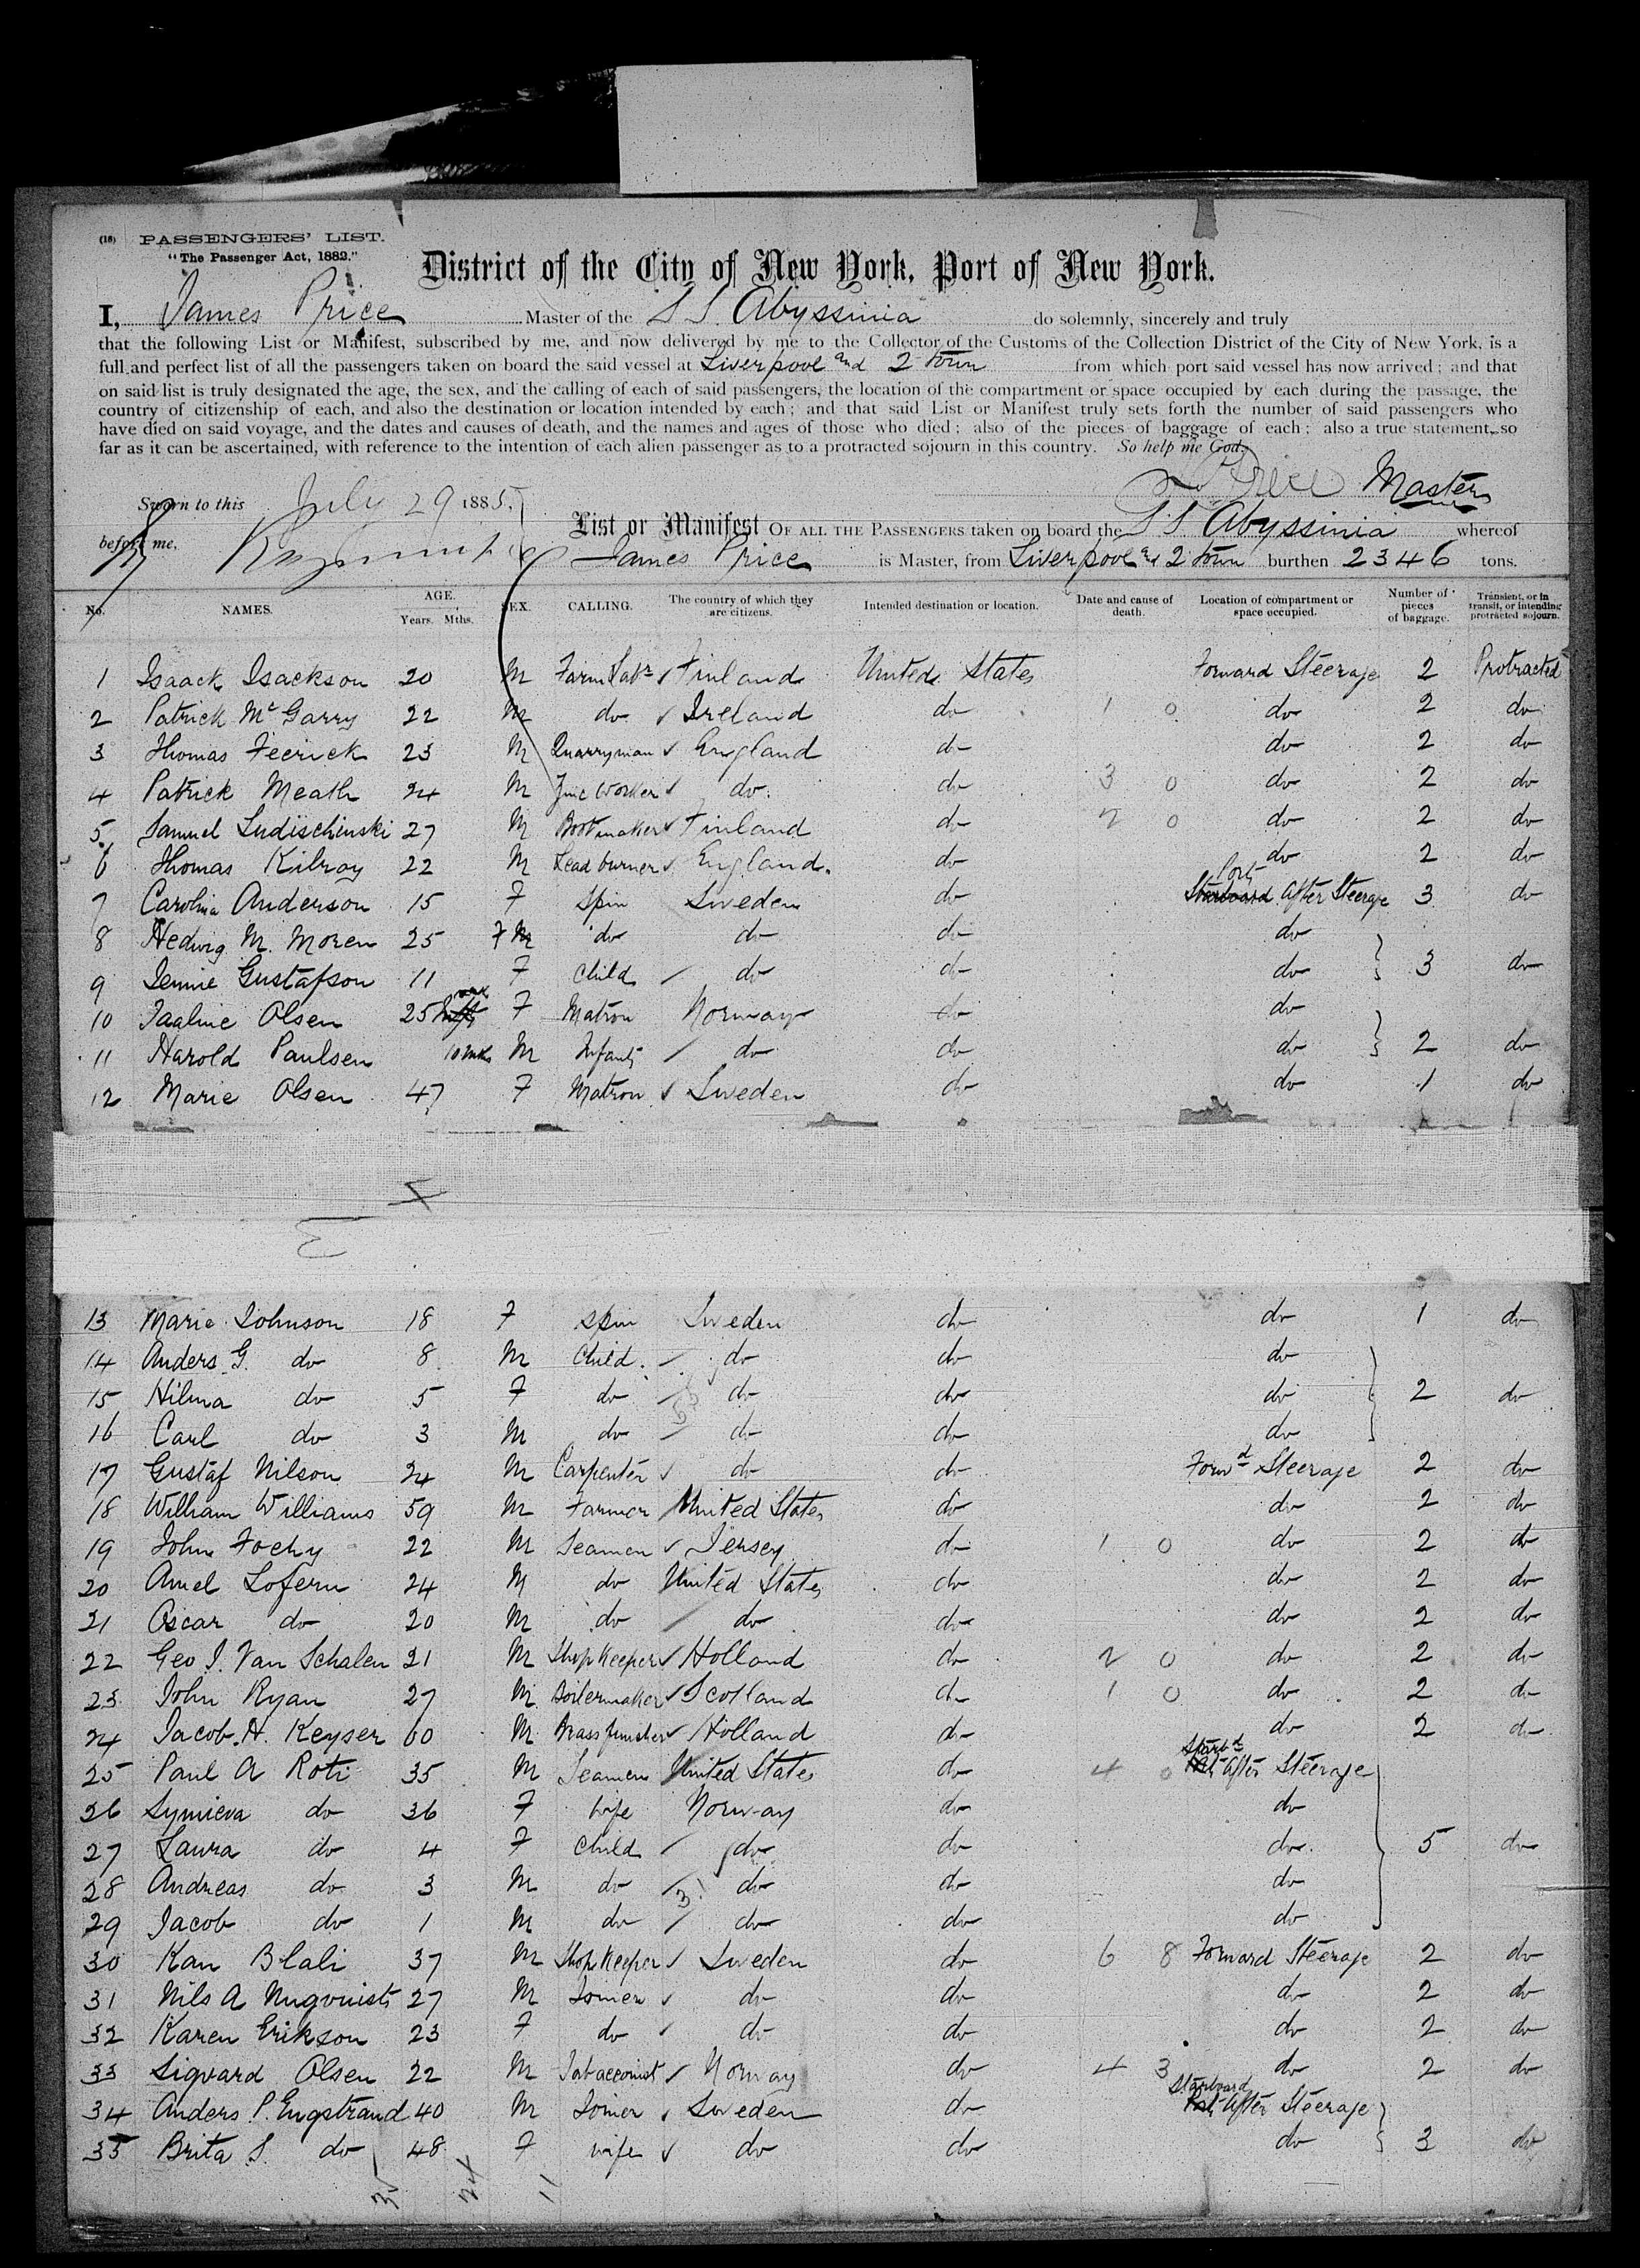 (16) PASSENGERS' LIST.
"The Passenger Act, 1882."
District of the City of New York, Port of New York.
I, James Price Master of the S S. Abyssinia do solemnly, sincerely and truly
that the following List or Manifest, subscribed by me, and now delivered by me to the Collector of the Customs of the Collection District of the City of New York, is a
full and perfect list of all the passengers taken on board the said vessel at Liverpool and 2 town from which port said vessel has now arrived; and that
on said list is truly designated the age, the sex, and the calling of each of said passengers, the location of the compartment or space occupied by each during the passage, the
country of citizenship of each, and also the destination or location intended by each; and that said List or Manifest truly sets forth the number of said passengers who
have died on said voyage, and the dates and causes of death, and the names and ages of those who died; also of the pieces of baggage of each; also a true statement, so
far as it can be ascertained, with reference to the intention of each alien passenger as to a protracted sojourn in this country. So help me God.
Price Master
Sworn to this July 29 1885,
before me,
List or Manifest OF ALL THE PASSENGERS taken on board the S S Abyssinia whereof
James Price is Master, from Liverpool & 2 town burthen 2346 tons.
No. NAMES. AGE. Years. Mths. SEX. CALLING. The country of which they are citizens. Intended destination or location. Date and cause of death. Location of compartment or space occupied. Number of pieces of baggage. Transient, or in transit, or intending protracted sojourn.
1 Isaack Isackson 20 M Farm Labr Finland United States Forward Steerage 2 Protracted
2 Patrick McGarry 22 M do Ireland do 1 0 do 2 do
3 Thomas Feerick 23 M Quarryman England do do 2 do
4 Patrick Meath 24 M Zinc Worker do do 3 0 do 2 do
5 Samuel Ludischinski 27 M Bootmaker Finland do 2 0 do 2 do
6 Thomas Kilroy 22 M Lead burner England do do 2 do
7 Carolina Anderson 15 F Spin Sweden do Port After Steerage 3 do
8 Hedwig M. Moren 25 F do do do do
9 Jennie Gustafson 11 F Child do do do 3 do
10 Taaline Olsen 25 F Matron Norway do do
11 Harold Paulsen 10 mths M Infant do do do 2 do
12 Marie Olsen 47 F Matron Sweden do do 1 do
13 Marie Johnson 18 F spin Sweden do do 1 do
14 Anders G. do 8 M Child do do do
15 Hilma do 5 F do do do do 2 do
16 Carl do 3 M do do do do
17 Gustaf Nilson 24 M Carpenter do do Forwd Steerage 2 do
18 William Williams 59 M Farmer United States do do 2 do
19 John Fochy 22 M Seaman Jersey do 1 0 do 2 do
20 Amel Lofern 24 M do United States do do 2 do
21 Oscar do 20 M do do do do 2 do
22 Geo J. Van Schalen 21 M Shop Keeper Holland do 2 0 do 2 do
23 John Ryan 27 M Boilermaker Scotland do 1 0 do 2 do
24 Jacob. H. Keyser 60 M Brass finisher Holland do do 2 do
25 Paul A Roti 35 M Seamen United States do 4 0 Starbd After Steerage
26 Symieva do 36 F Wife Norway do do
27 Laura do 4 F Child do do do 5 do
28 Andreas do 3 M do do do do
29 Jacob do 1 M do do do do
30 Kan Blali 37 M Shop Keeper Sweden do 6 8 Forward Steerage 2 do
31 Nils A Nugvuist 27 M Joiner do do do 2 do
32 Karen Erikson 23 F do do do do 2 do
33 Sigvard Olsen 22 M Tobacconist Norway do 4 3 do 2 do
34 Anders P. Engstrand 40 M Joiner Sweden do Starboard After Steerage
35 Brita S. do 48 F wife do do do 3 do